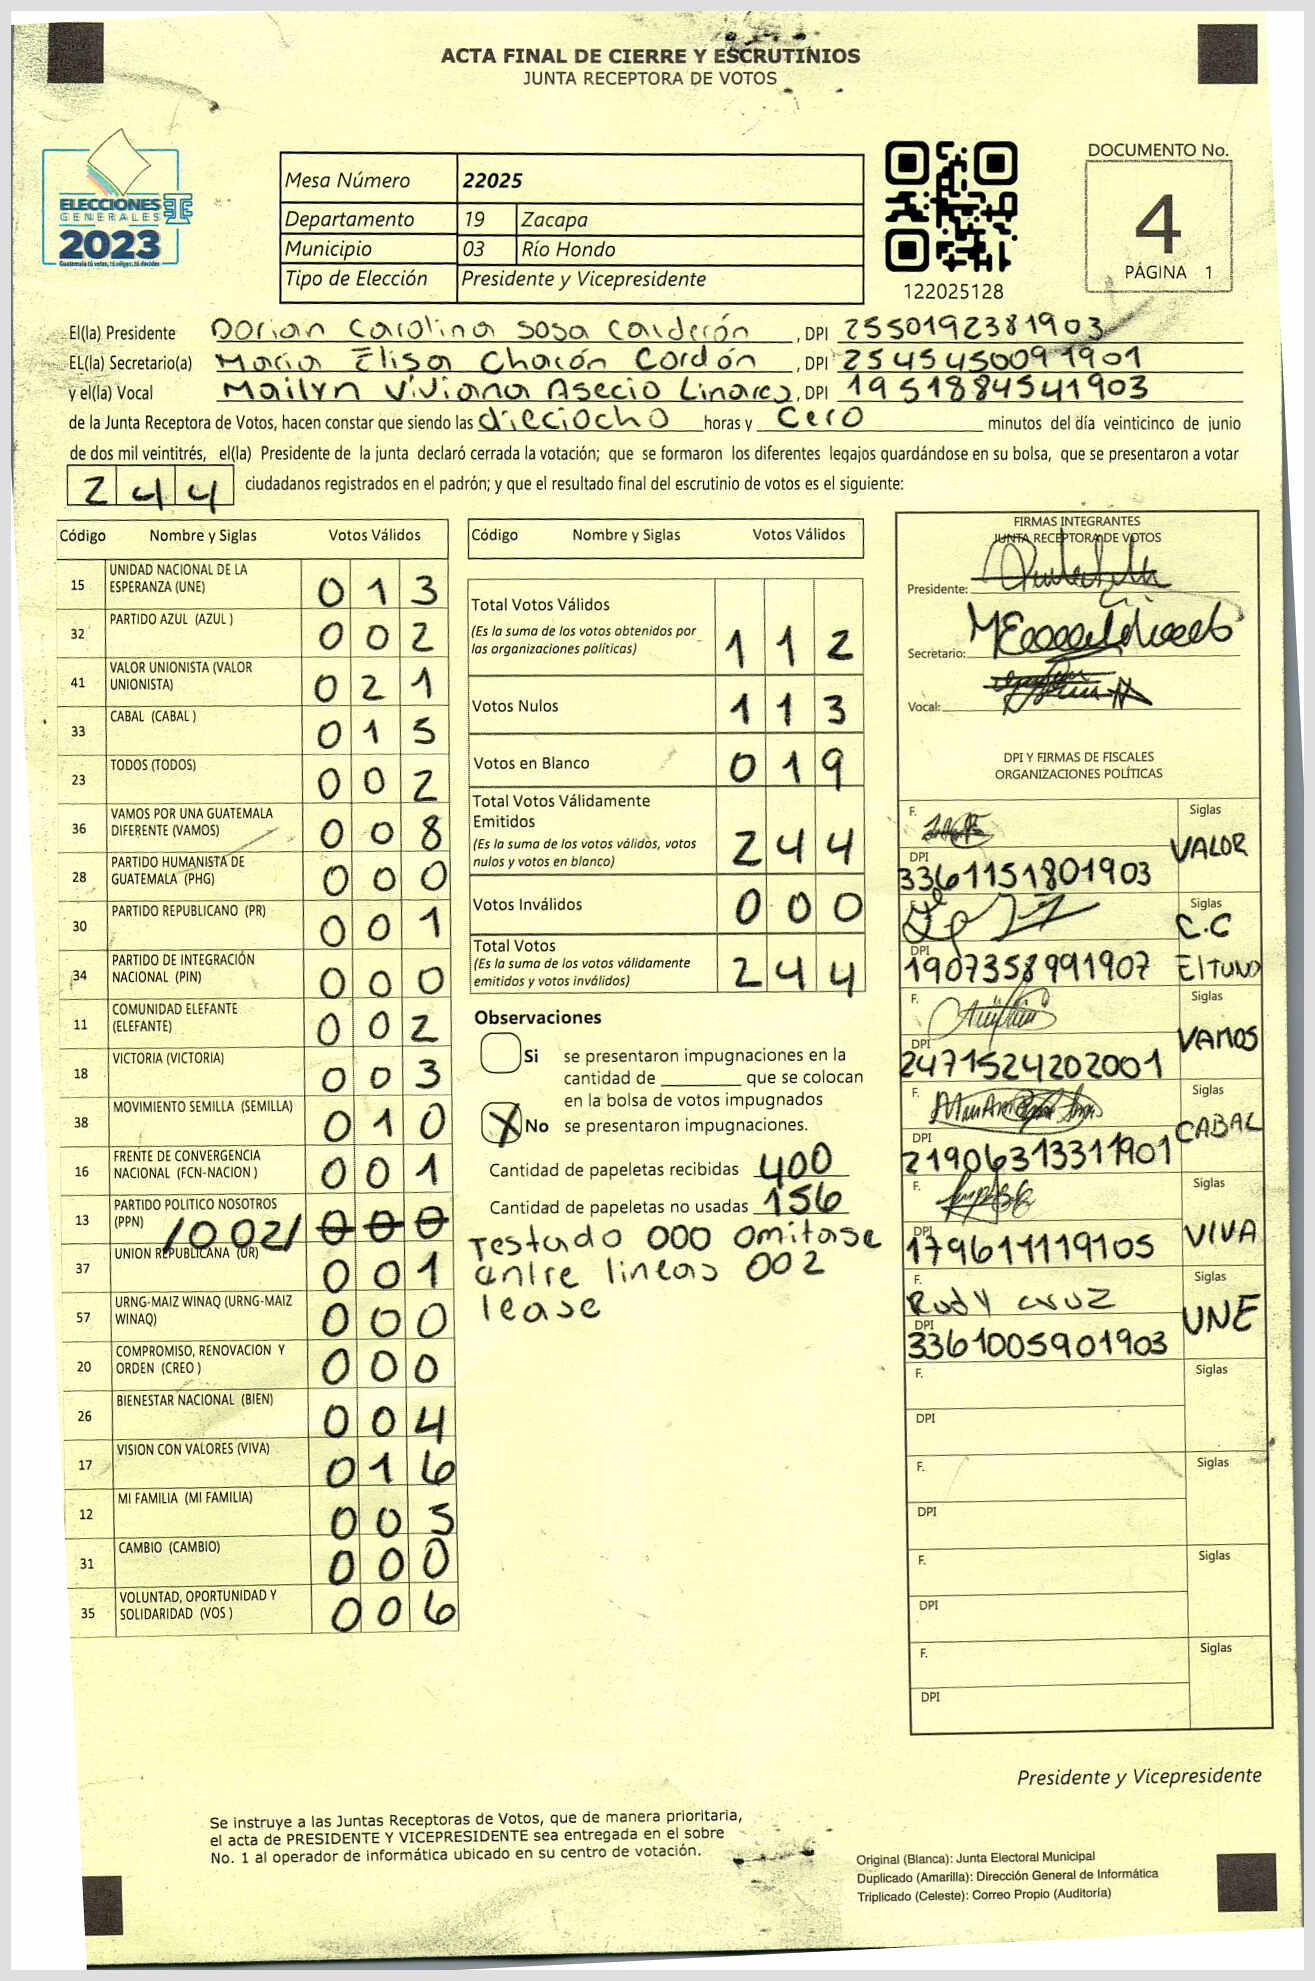 ACTA FINAL DE CIERRE Y ESCRUTINIOS
JUNTA RECEPTORA DE VOTOS
ELECCIONES
GENERALES
2023
Guatemala tú votas, tú eliges, tú decides
Mesa Número 22025
Departamento 19 Zacapa
Municipio 03 Río Hondo
Tipo de Elección Presidente y Vicepresidente
122025128
DOCUMENTO No.
4
PÁGINA 1
El(la) Presidente Dorian Carolina Sosa Calderón, DPI 2550192381903
EL(la) Secretario(a) Maria Elisa Chacón Cordón, DPI 2545450091901
y el(la) Vocal Mailyn Viviana Asecio Linares, DPI 1951884541903
de la Junta Receptora de Votos, hacen constar que siendo las dieciocho horas y cero minutos del día veinticinco de junio
de dos mil veintitrés, el(la) Presidente de la junta declaró cerrada la votación; que se formaron los diferentes legajos guardándose en su bolsa, que se presentaron a votar
244 ciudadanos registrados en el padrón; y que el resultado final del escrutinio de votos es el siguiente:
Código Nombre y Siglas Votos Válidos
15 UNIDAD NACIONAL DE LA ESPERANZA (UNE) 013
32 PARTIDO AZUL (AZUL ) 002
41 VALOR UNIONISTA (VALOR UNIONISTA) 021
33 CABAL (CABAL ) 015
23 TODOS (TODOS) 002
36 VAMOS POR UNA GUATEMALA DIFERENTE (VAMOS) 008
28 PARTIDO HUMANISTA DE GUATEMALA (PHG) 000
30 PARTIDO REPUBLICANO (PR) 001
34 PARTIDO DE INTEGRACIÓN NACIONAL (PIN) 000
11 COMUNIDAD ELEFANTE (ELEFANTE) 002
18 VICTORIA (VICTORIA) 003
38 MOVIMIENTO SEMILLA (SEMILLA) 010
16 FRENTE DE CONVERGENCIA NACIONAL (FCN-NACION ) 001
13 PARTIDO POLITICO NOSOTROS (PPN) /002/ 000
37 UNION REPUBLICANA (UR) 001
57 URNG-MAIZ WINAQ (URNG-MAIZ WINAQ) 000
20 COMPROMISO, RENOVACION Y ORDEN (CREO ) 000
26 BIENESTAR NACIONAL (BIEN) 004
17 VISION CON VALORES (VIVA) 016
12 MI FAMILIA (MI FAMILIA)
31 CAMBIO (CAMBIO) 000
35 VOLUNTAD, OPORTUNIDAD Y SOLIDARIDAD (VOS ) 006
Código Nombre y Siglas Votos Válidos
Total Votos Válidos
(Es la suma de los votos obtenidos por
las organizaciones políticas) 112
Votos Nulos 113
Votos en Blanco 019
Total Votos Válidamente
Emitidos
(Es la suma de los votos válidos, votos
nulos y votos en blanco) 244
Votos Inválidos 000
Total Votos
(Es la suma de los votos válidamente
emitidos y votos inválidos) 244
Observaciones
Si se presentaron impugnaciones en la
cantidad de ________ que se colocan
en la bolsa de votos impugnados
X No se presentaron impugnaciones.
Cantidad de papeletas recibidas 400
Cantidad de papeletas no usadas 156
Testado 000 omitase
entre lineas 002
lease
FIRMAS INTEGRANTES
JUNTA RECEPTORA DE VOTOS
Presidente:
Secretario:
Vocal:
DPI Y FIRMAS DE FISCALES
ORGANIZACIONES POLÍTICAS
F. Siglas VALOR
DPI 3361151801903
F. Siglas C.C
DPI 1907358991907 El TUNO
F. Siglas VAMOS
DPI 2471524202001
F. Siglas CABAL
DPI 2190631331901
F. Siglas VIVA
DPI 1796111119105
F. Rudy cruz Siglas UNE
DPI 3361005901903
F. Siglas
DPI
F. Siglas
DPI
F. Siglas
DPI
F. Siglas
DPI
Presidente y Vicepresidente
Se instruye a las Juntas Receptoras de Votos, que de manera prioritaria,
el acta de PRESIDENTE Y VICEPRESIDENTE sea entregada en el sobre
No. 1 al operador de informática ubicado en su centro de votación.
Original (Blanca): Junta Electoral Municipal
Duplicado (Amarilla): Dirección General de Informática
Triplicado (Celeste): Correo Propio (Auditoria)